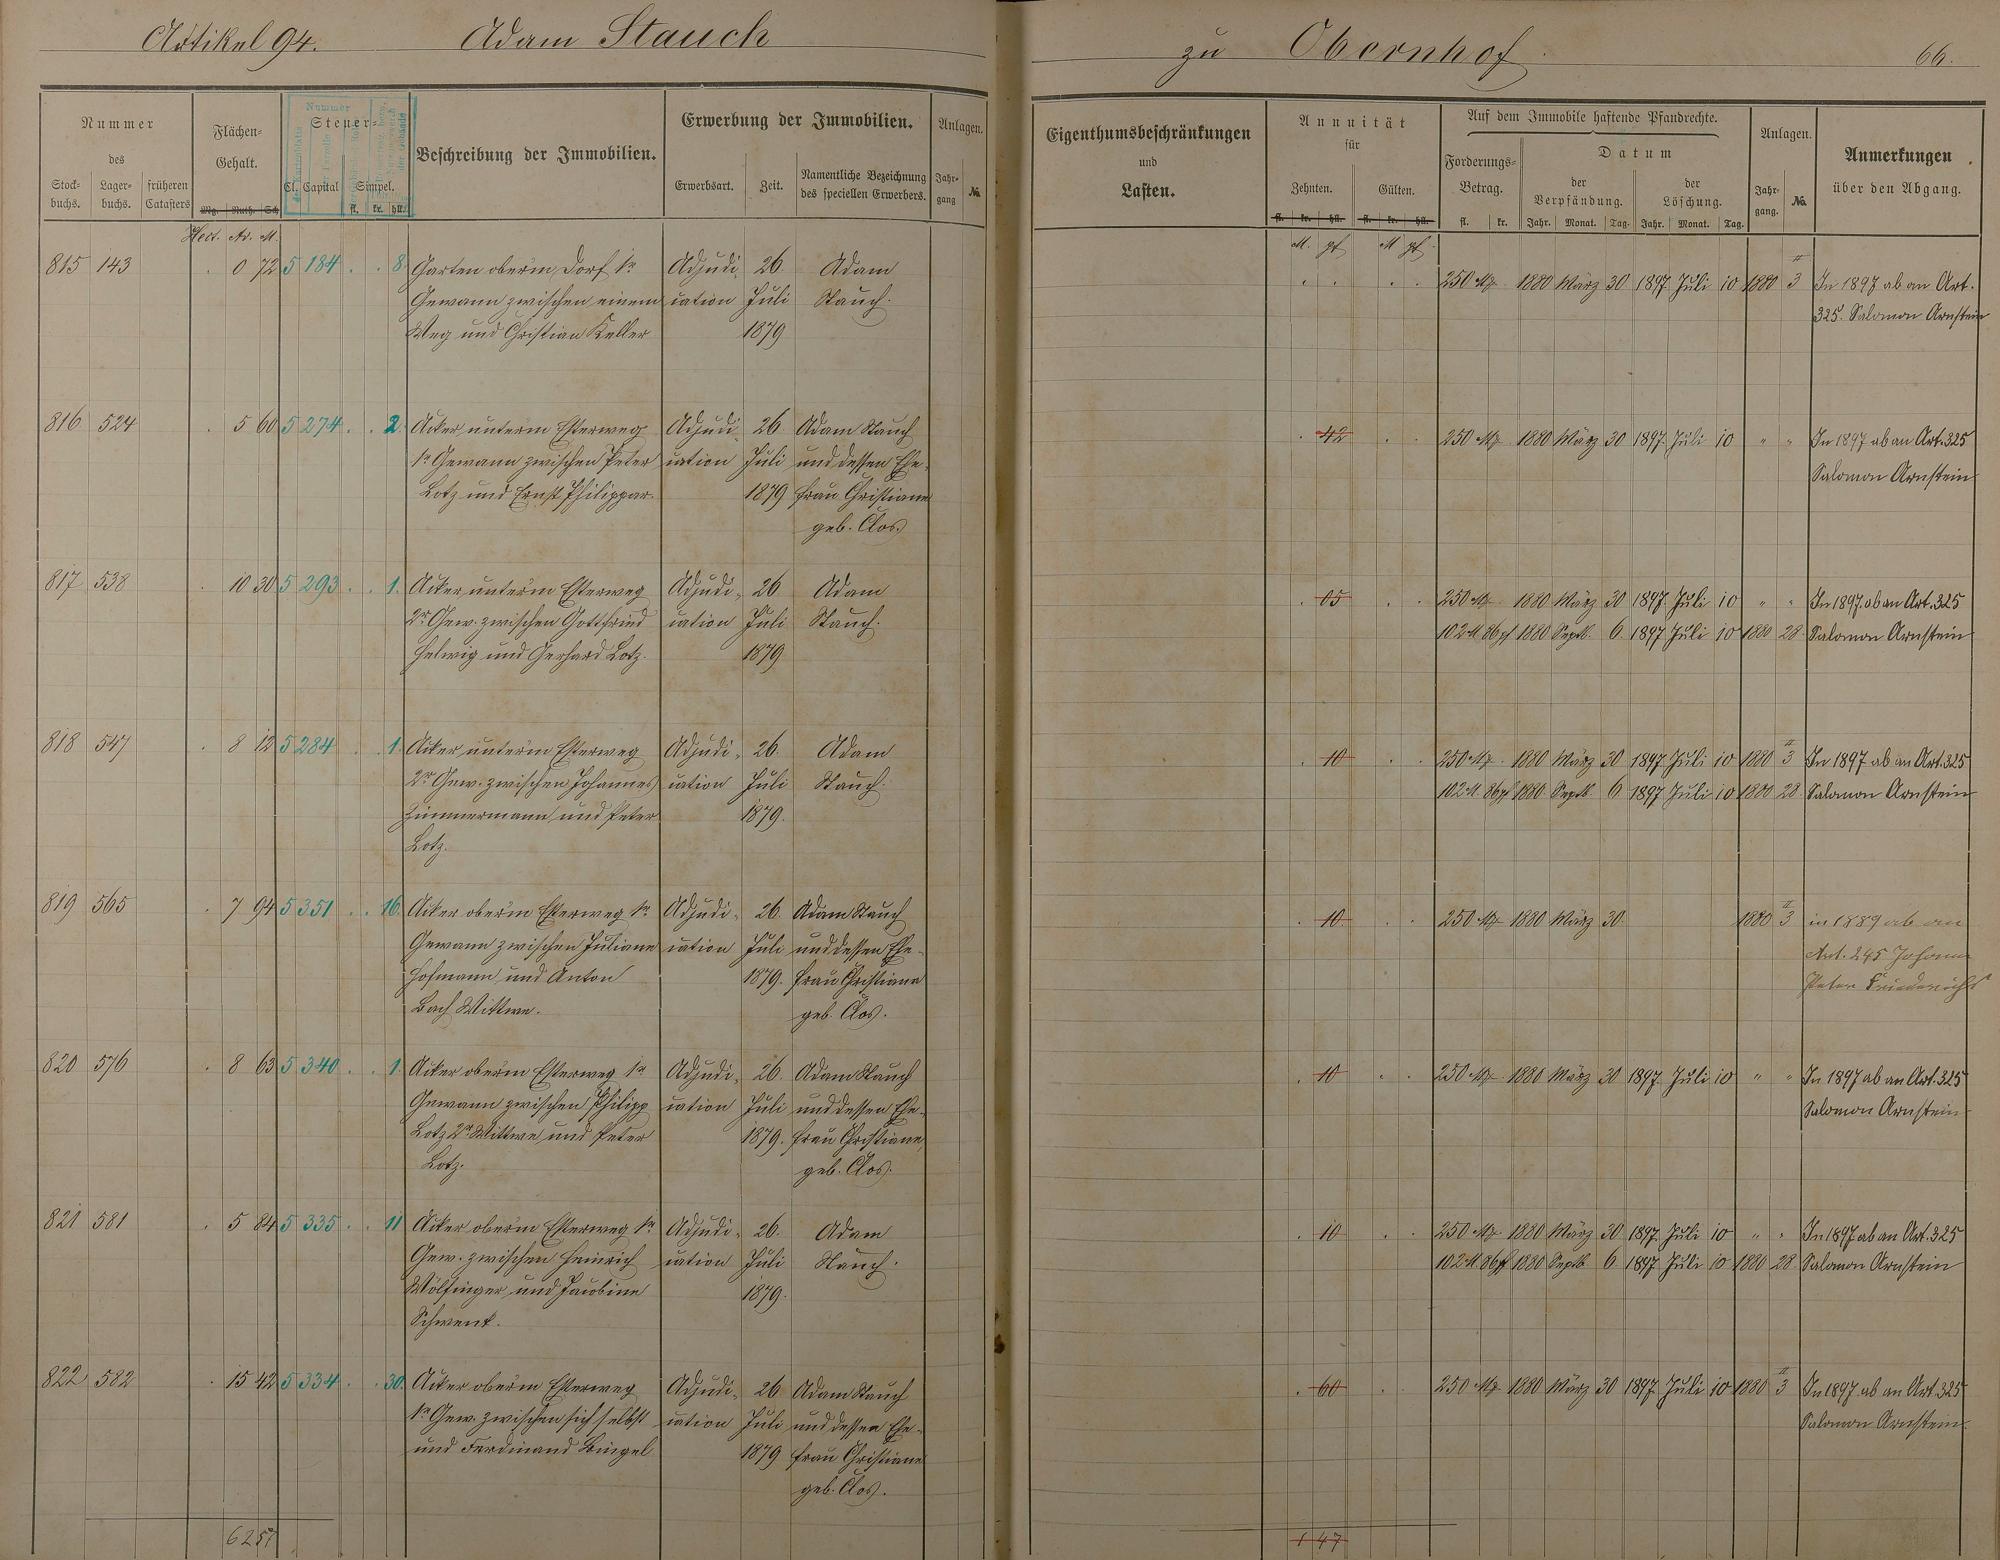 Artikel 94. Adam Stauch
zu Obernhof. 66.
Nummer
des
Stock-buchs. Lager-buchs. früheren Catasters
Flächen-Gehalt.
Mg. Ruth. Sch
Nummer
Steuer-
Cl. Capital Simpel.
fl. kr. hll.
Beschreibung der Immobilien.
Erwerbung der Immobilien.
Erwerbsart. Zeit. Namentliche Bezeichnung des speciellen Erwerbers.
Anlagen.
Jahr-gang No.
Eigenthumsbeschränkungen
und
Lasten.
Annuität
für
Zehnten. Gülten.
fl. kr. hll. fl. kr. hll.
Auf dem Immobile haftende Pfandrechte.
Forderungs-Betrag.
fl. kr.
Datum
der Verpfändung. der Löschung.
Jahr. Monat. Tag. Jahr. Monat. Tag.
Anlagen.
Jahr-gang. No.
Anmerkungen
über den Abgang.
Hect. Ar. M.
M. pf M pf
815 143 0 72 5 184 . . 8 Garten oberm Dorf 1r Adjudi- 26 Adam
Gewann zwischen einem cation Juli Stauch.
Weg und Christian Keller 1879
250 M 1880 März 30 1897 Juli 10 1880 II 3 In 1897 ab an Art.
325. Salomon Arnstein
816 524 5 60 5 274 . . 2 Acker unterm Esterweg Adjudi- 26 Adam Stauch
1r Gewann zwischen Peter cation Juli und dessen Ehe-
Lotz und Ernst Philippar. 1879 frau Christiane
geb. Clos.
42 250 M 1880 März 30 1897 Juli 10 " " In 1897 ab an Art. 325
Salomon Arnstein
817 538 10 30 5 293 . . 1. Acker unterm Esterweg Adjudi- 26 Adam
2r Gew. zwischen Gottfried cation Juli Stauch.
Helwig und Gerhard Lotz. 1879
05 250 M 1880 März 30 1897 Juli 10 " " In 1897 ab an Art. 325
102 M 86 pf 1880 Septb. 6 1897 Juli 10 1880 28 Salomon Arnstein
818 547 8 12 5 284 . 1. Acker unterm Esterweg Adjudi- 26. Adam
2r Gew. zwischen Johannes cation Juli Stauch.
Zimmermann und Peter 1879.
Lotz.
10 250 M 1880 März 30 1897 Juli 10 1880 II 3 In 1897 ab an Art. 325
102 M. 86 pf 1880 Septb. 6 1897 Juli 10 1880 28 Salomon Arnstein
819 565 7 94 5 351 . . 16. Acker oberm Esterweg 1r Adjudi- 26. Adam Stauch
Gewann zwischen Juliane cation Juli und dessen Ehe-
Hofmann und Anton 1879. frau Christiane
Bach Wittwe. geb. Clos.
10. 250 M 1880 März 30. 1880 II 3 in 1889 ab an
Art. 245 Johann
Peter Friederichs
820 576 8 63 5 340 . . 1. Acker oberm Esterweg 1r Adjudi- 26. Adam Stauch
Gewann zwischen Philipp cation Juli und dessen Ehe-
Lotz 2r Wittwe und Peter 1879. frau Christiane
Lotz. geb. Clos.
10 250 M 1880 März 30 1897 Juli 10 " " In 1897 ab an Art. 325
Salomon Arnstein
821 581 5 84 5 335 . . 11 Acker oberm Esterweg 1r Adjudi- 26. Adam
Gew. zwischen Heinrich cation Juli Stauch.
Wölfinger und Jacobine 1879.
Schwenk.
10 250 M 1880 März 30 1897 Juli 10 " " In 1897 ab an Art. 325
102 M 86 pf 1880 Septb 6 1897 Juli 10 1880 28 Salomon Arnstein
822 582 15 42 5 334 . . 30. Acker oberm Esterweg Adjudi- 26 Adam Stauch
1r Gew. zwischen sich selbst cation Juli und dessen Ehe-
und Ferdinand Bingel 1879 frau Christiane
geb. Clos.
60 250 M 1880 März 30 1897 Juli 10 1880 II 3 In 1897 ab an Art 325
Salomon Arnstein.
62 57
1 47